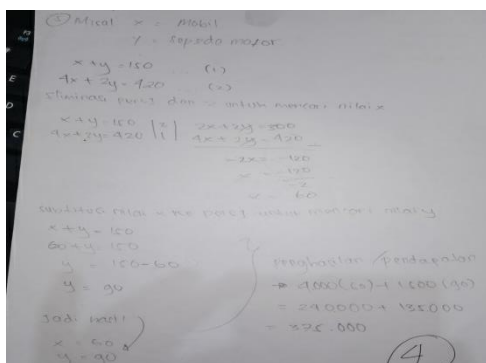 ② Misal x = Mobil
y = Sepeda motor
x + y = 150 ... (1)
4x + 2y = 420 ... (2)
eliminasi pers 1 dan 2 untuk mencari nilai x
x + y = 150 | 2 | 2x + 2y = 300
4x + 2y = 420 | 1 | 4x + 2y = 420 -
-2x = -120
x = -120
-2
x = 60
substitusi nilai x ke pers 1 untuk mencari nilai y
x + y = 150
60 + y = 150
y = 150 - 60
y = 90
Jadi hasil
x = 60
y = 90
penghasilan / pendapatan
→ 4000 (60) + 1500 (90)
= 240000 + 135000
= 375.000
④